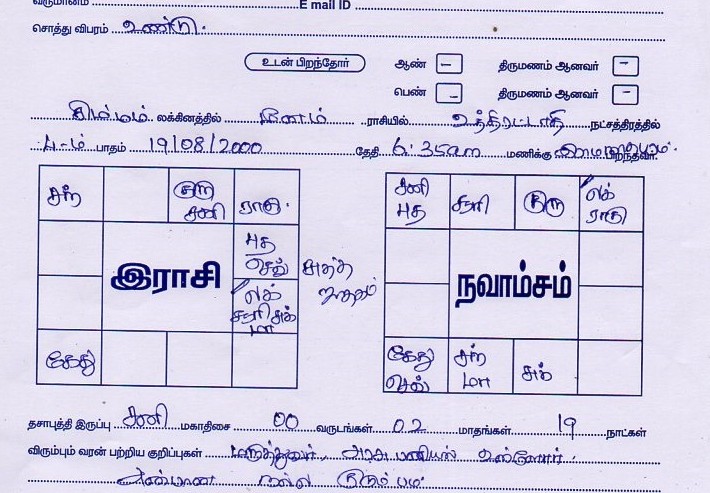 வருமானம் E mail ID
சொத்து விபரம் உண்டு.
உடன் பிறந்தோர் ஆண் – திருமணம் ஆனவர் –
பெண் – திருமணம் ஆனவர் –
சிம்மம் லக்கினத்தில் மீனம் ராசியில் உத்திரட்டாதி நட்சத்திரத்தில்
4-ம் பாதம் 19/08/2000 தேதி 6.35am மணிக்கு பிறந்தவர்.
சந் குரு சனி ராகு.
புத செவ்
இராசி
லக் சூரி சுக் மா
கேது
சனி புத சூரி குரு லக் ராகு
நவாம்சம்
கேது செவ் சந் மா சுக்
தசாபுத்தி இருப்பு சனி மகாதிசை 00 வருடங்கள் 02 மாதங்கள் 19 நாட்கள்
விரும்பும் வரன் பற்றிய குறிப்புகள் மருத்துவர், அரசு பணியில் உள்ளோர்.
நல்ல குடும்பம்